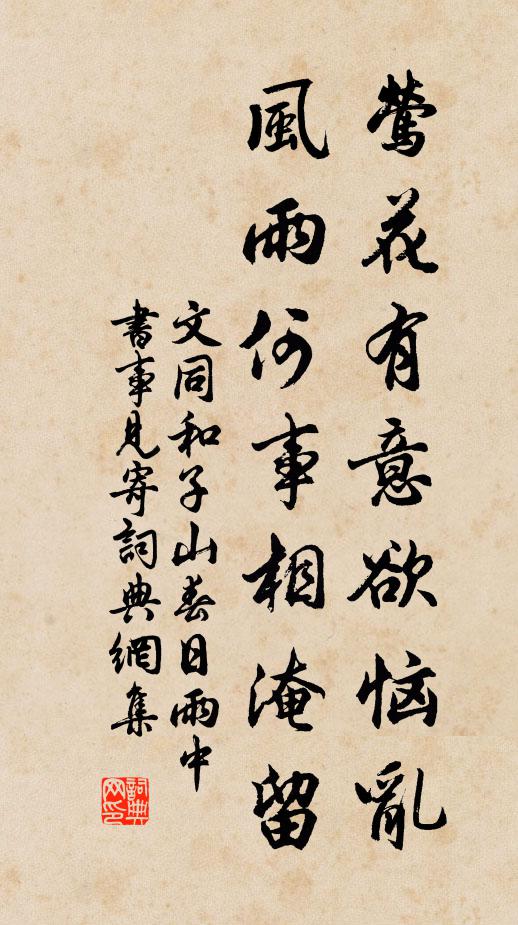 鶯花有意欲恼亂
風雨何事相淹留
文同和子山春日雨中
書事見寄詞典網集
詞典
网印